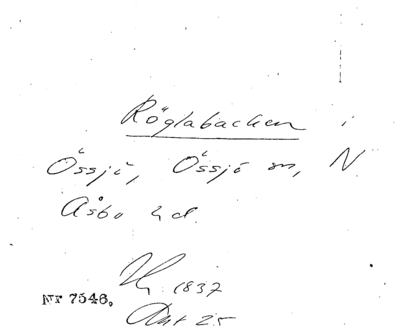 Röglabacken i
Össjö, Össjö sn, N
Åsbo hd.
1837
Nr 7546.
Akt 25